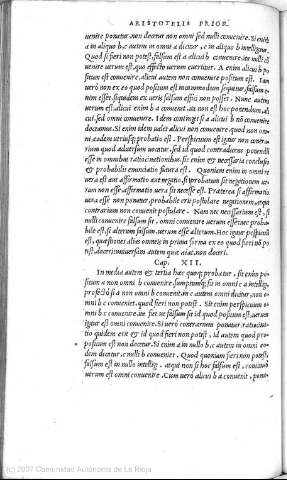 ARISTOTELIS PRIOR.
uenire ponatur, non docetur non omni sed nulli conuenire. Si enim
a in aliquo b, c autem in omni a dicitur, c in aliquo b intelligitur.
Quod si fieri non potest, falsum est a alicui b conuenire, ita nulli
uenire uerum est, quo effecto uerum euertitur. A enim alicui b po
situm est conuenire, alicui autem non conuenire positum est. Iam
uerò non ex eo quod positum est
esset, siquidem ex ueris falsum effici non posset. Nunc autem
uerum est, alicui enim b a conuenit, ita non est hoc ponendum, ali
cui, sed omni conuenire. Idem contingit si a alicui b nõ conuenire
doceamus. Si enim idem ualet alicui non conuenire quod non om
ni, eadem utrisque probatio est. Perspicuum est igitur non contra-
rium quod aduersum uocatur, sed id quod contradicens poneretur
esse in omnibus ratiocinationibus, sic enim et necessaria conclusio
et probabilis enunciatio futura est. Quoniam enim in omni re
uera est aut affirmatio aut negatio, si probatum sit negationem ue-
ram non esse affirmatio uera sit necesse est. Praeterea si affirmatio
uera esse non ponatur, probabile erit postulare negationem, atqui
contrarium non conuenit postulare. Nam nec necessarium est, si
nulli conuenire falsum sit, omni conuenire uerum esse, nec proba-
bile est, si alterum falsum, uerum esse alterum. Hoc igitur perspicuũ
est, quaestiones alias omneis in prima forma ex eo quod fieri nõ po
test, doceri, uniuersam autem quae aiat, non doceri.
Cap. XII.
In media autem et tertia haec quoque probatur, sit enim posi
tum a non omni b conuenire, sumptumque sit in omni c a intellig,
profectò si a non omni b conuenit, in c autem omni dicitur, non o-
mni b c conueniet, quod fieri non potest. Sit enim perspicuum o-
mni b c conuenire, ita fiet ut falsum sit id quod positum est, uerum
igitur est omni conuenire. Si uerò contrarium ponatur, ratiocina
tio quidem erit et id quod fieri non potest, id autem quod pro-
positum est non docetur. Si enim a in nullo b, c autem in omni eo-
dem dicitur, c nulli b conueniet. Quod quoniam fieri non potest,
falsum est in nullo intellig, atqui non si hoc falsum est, continuò
uerum est omni conuenire. Cum uerò alicui b a conuenit, pona-
(c) 2007 Comunidad Autónoma de La Rioja